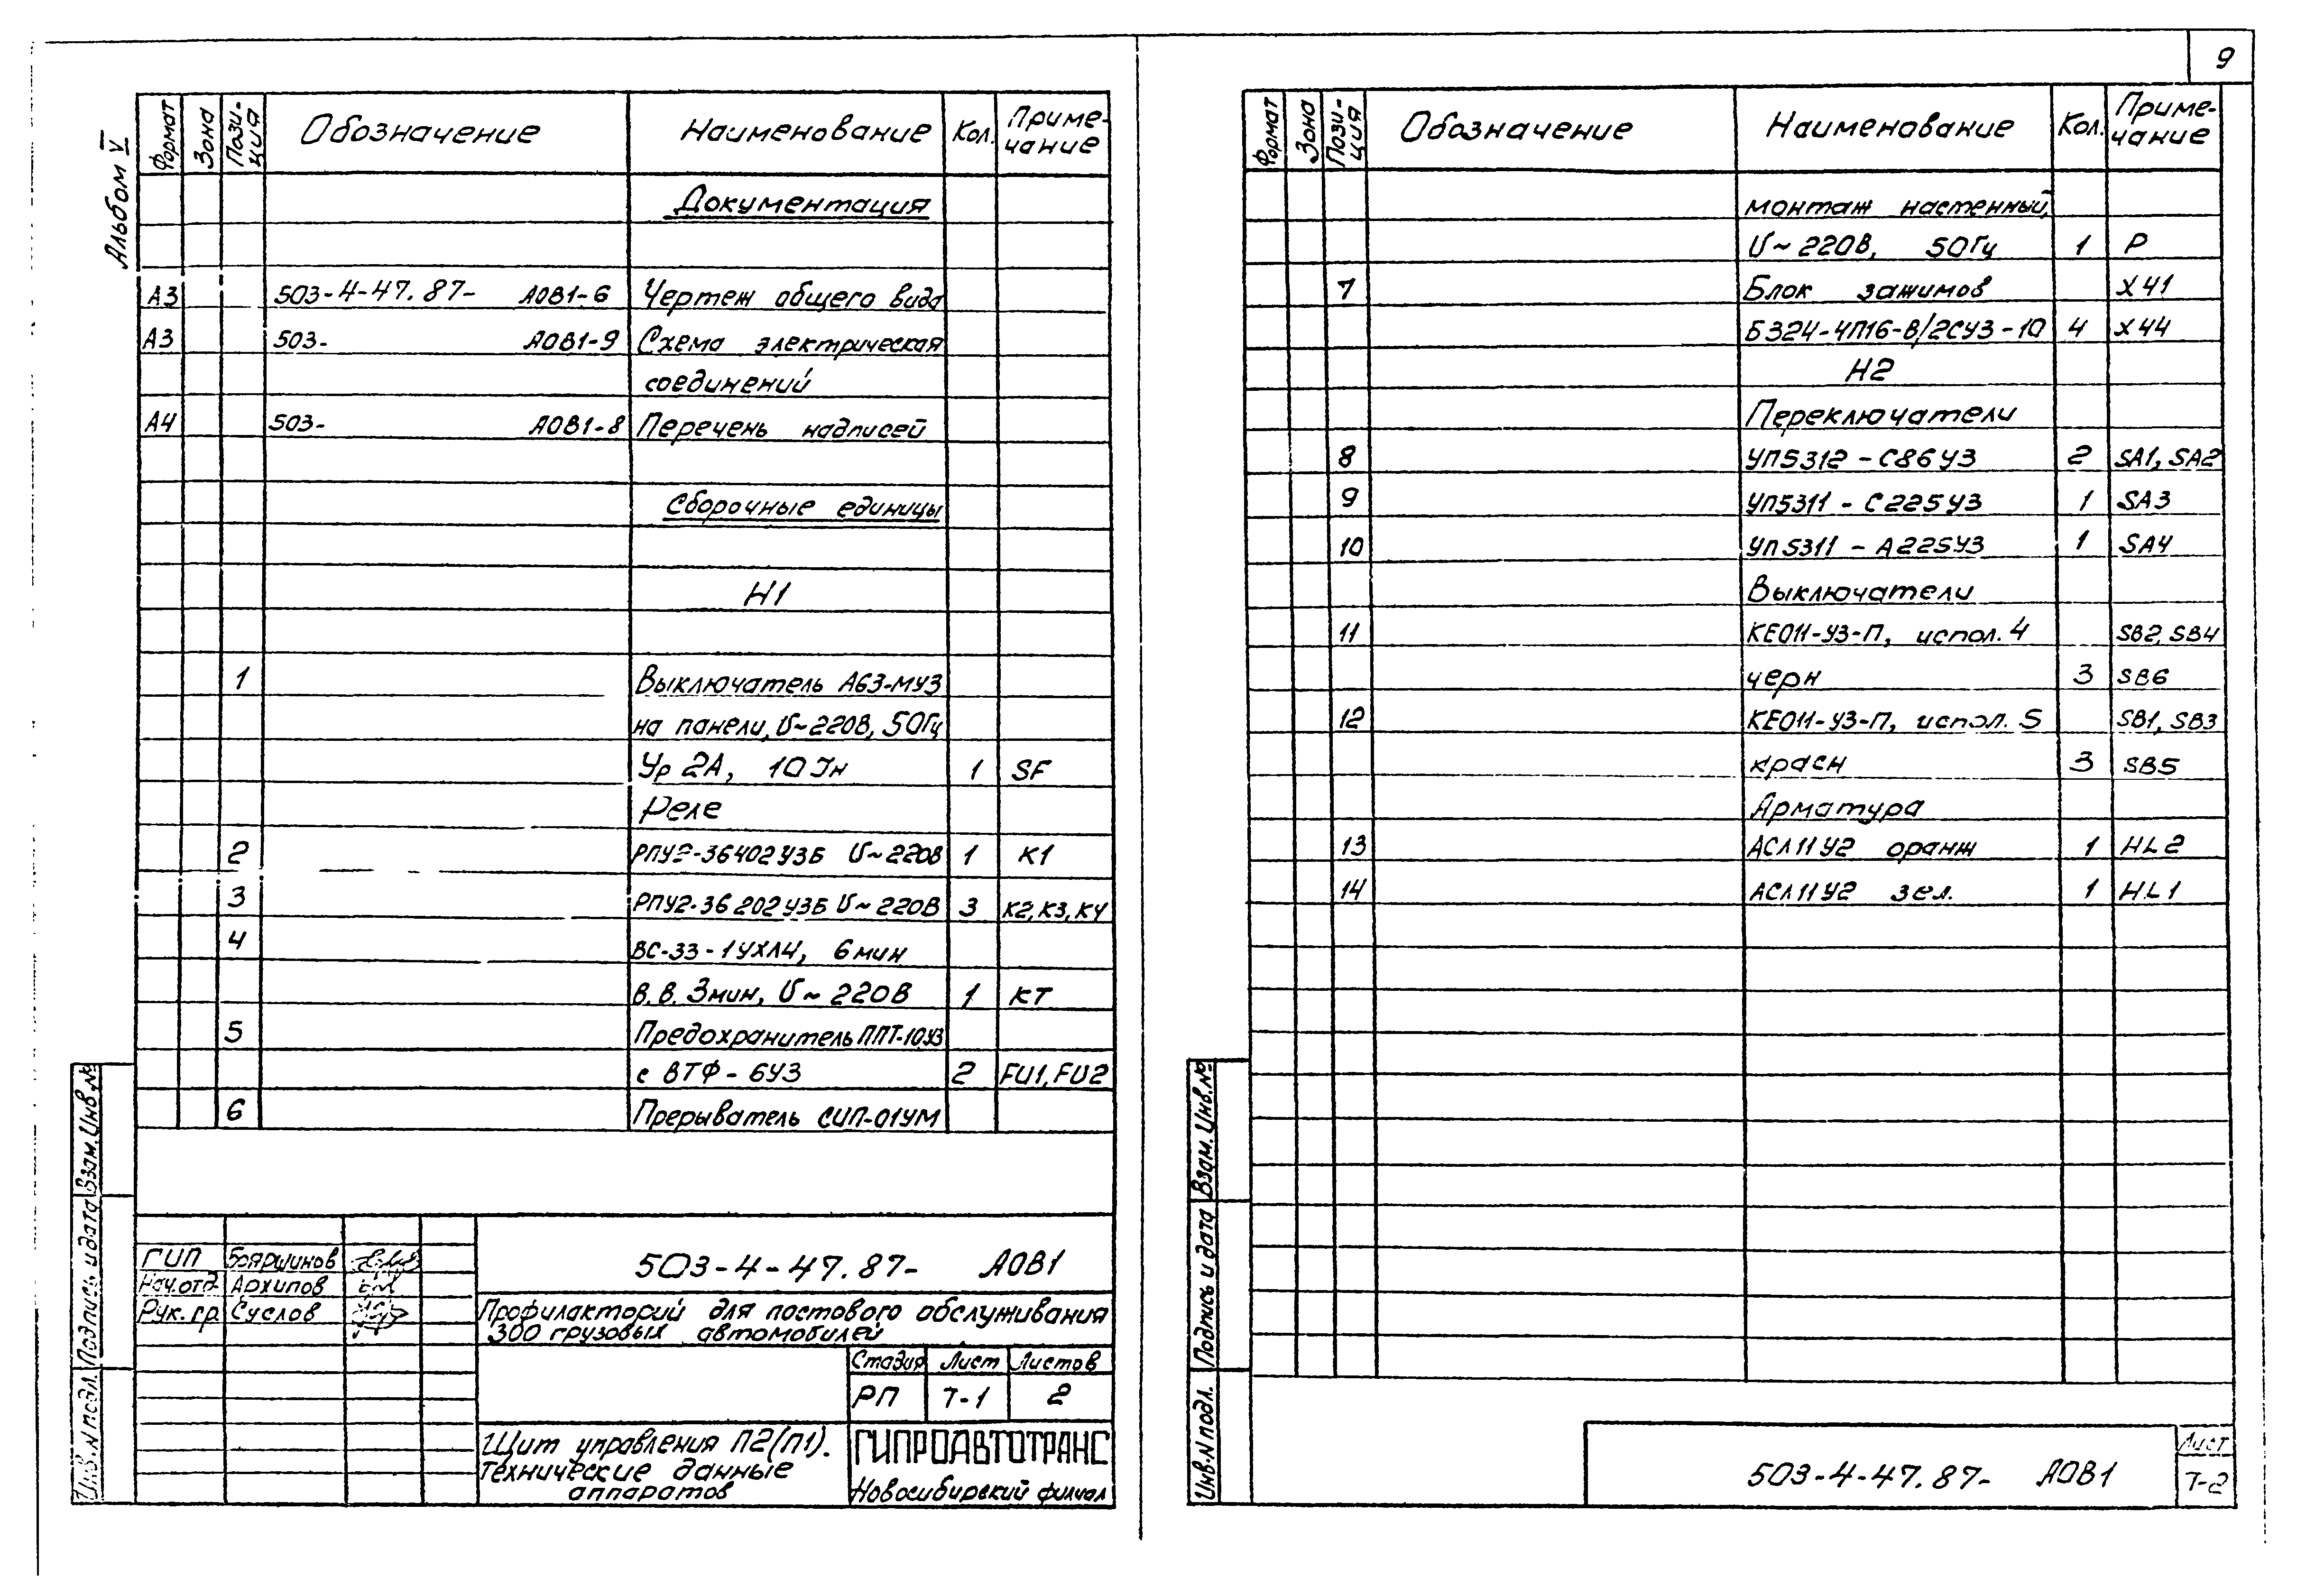 9
Альбом V
Формат Зона Пози-ция Обозначение Наименование Кол. Приме-чание
Документация
А3 503-4-47.87- АОВ1-6 Чертеж общего вида
А3 503- АОВ1-9 Схема электрическая
соединений
А4 503- АОВ1-8 Перечень надписей
Сборочные единицы
Н1
1 Выключатель А63-МУ3
на панели, U~220В, 50Гц
Ур 2А, 10Jн 1 SF
Реле
2 РПУ2-36402У3Б U~220В 1 К1
3 РПУ2-36202У3Б U~220В 3 К2, К3, К4
4 ВС-33-1УХЛ4, 6мин
в.в. 3мин, U~220В 1 КТ
5 Предохранитель ППТ-10У3
с ВТФ-6У3 2 FU1, FU2
6 Прерыватель СИП-01УМ
ГИП Бояршинов
Нач.отд. Архипов
Рук.гр. Суслов
503-4-47.87- АОВ1
Профилакторий для постового обслуживания
300 грузовых автомобилей
Стадия Лист Листов
РП Т-1 2
Щит управления П2(П1).
Технические данные
аппаратов
ГИПРОАВТОТРАНС
Новосибирский филиал
Инв.N подл. Подпись и дата Взам.Инв.№
Формат Зона Пози-ция Обозначение Наименование Кол. Приме-чание
монтаж настенный,
U~220В, 50Гц 1 Р
7 Блок зажимов Х41
БЗ24-4П16-В/2СУ3-10 4 Х44
Н2
Переключатели
8 УП5312-С86У3 2 SA1, SA2
9 УП5311-С225У3 1 SA3
10 УП5311-А225У3 1 SA4
Выключатели
11 КЕ011-У3-П, испол.4 SB2, SB4
черн 3 SB6
12 КЕ011-У3-П, испол.5 SB1, SB3
красн 3 SB5
Арматура
13 АСЛ11У2 оранж 1 HL2
14 АСЛ11У2 зел. 1 HL1
503-4-47.87- АОВ1
Лист
Т-2
Инв.N подл. Подпись и дата Взам.Инв.№